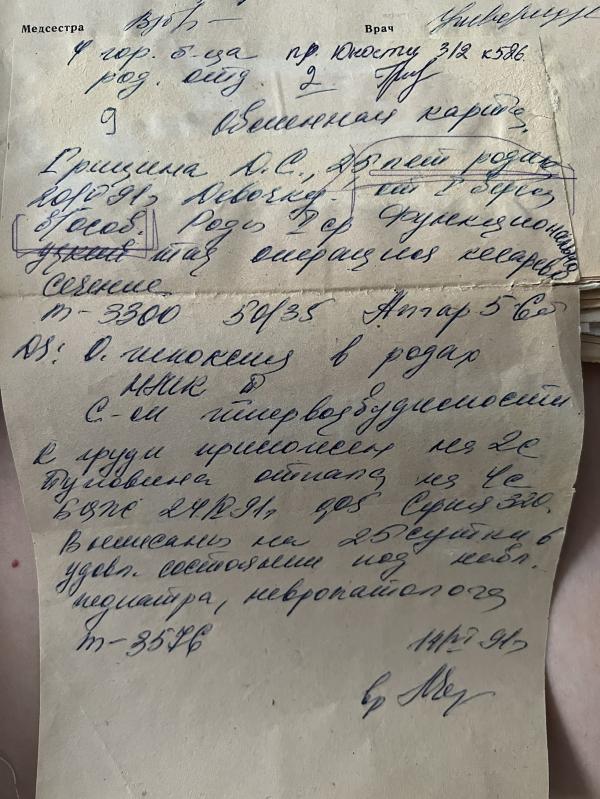 Медсестра Врач
4 гор. б-ца пр. Юности 3/2 к 586.
род. отд 2
9 Обменная карта.
Грицина О.С., 25 лет родила
91г Девочку. от I берем
в/особ. Роды I ср Функционально
узкий таз операция кесарево
сечение
m-3300 50/35 Апгар 5-6б
DS: О. гипоксия в родах
НМК
С-м гипервозбудимости
К груди приложен на 2с
Пуповина отпала на 4с
БЦЖ 24/ 91г 0,05 Серия 320.
Выписаны на 25 сутки в
удовл. состоянии под набл.
педиатра, невропатолога
m-3576 14/ 91г
вр